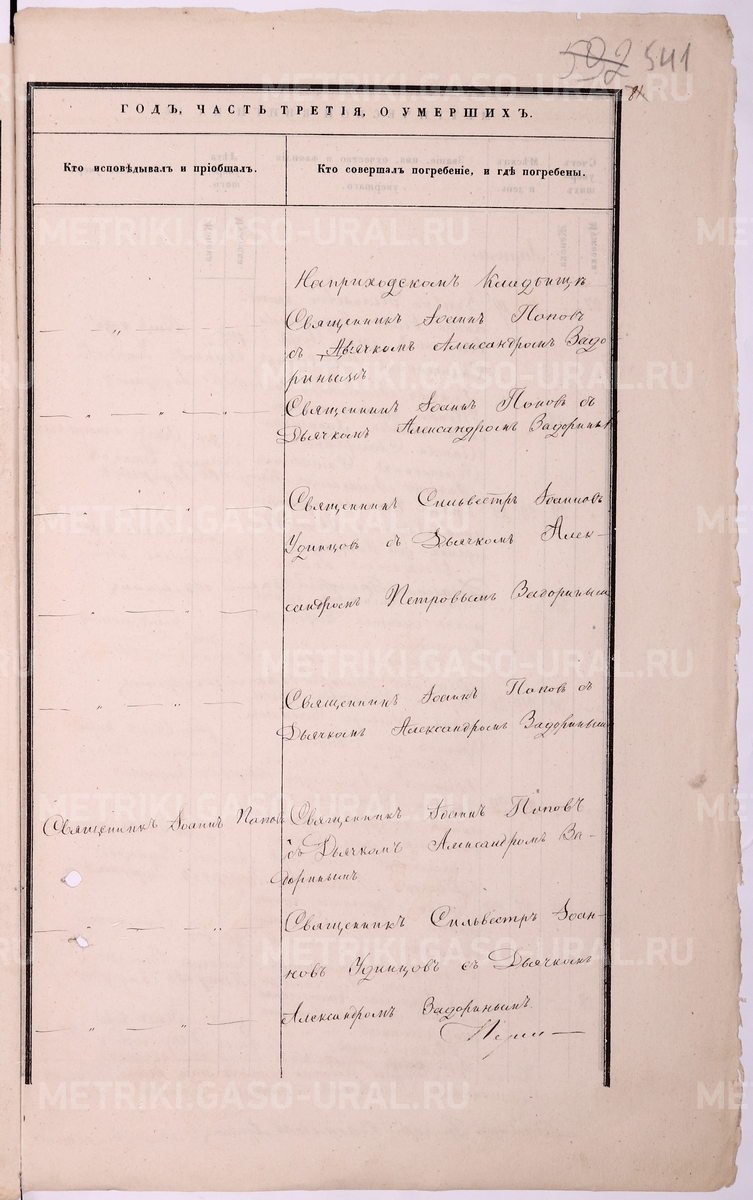 592 541
ГОДЪ, ЧАСТЬ ТРЕТІЯ, О УМЕРШИХЪ.
Кто исповѣдывалъ и пріобщалъ.
Кто совершалъ погребеніе, и гдѣ погребены.
На приходскомъ кладбищѣ
Священникъ Іоаннъ Поповъ
съ Дьячкомъ Александромъ Задо
ринымъ
Священникъ Іоаннъ Поповъ съ
Дьячкомъ Александромъ Задоринымъ
Священникъ Сильвестръ Іоанновъ
Удинцовъ съ Дьячкомъ Алек-
сандромъ Петровымъ Задоринымъ
Священникъ Іоаннъ Поповъ съ
Дьячкомъ Александромъ Задоринымъ
Священникъ Іоаннъ Поповъ
Священникъ Іоаннъ Поповъ
съ Дьячкомъ Александромъ За-
доринымъ
Священникъ Сильвестръ Іоан-
новъ Удинцовъ съ Дьячкомъ
Александромъ Задоринымъ.
METRIKI.GASO-URAL.RU